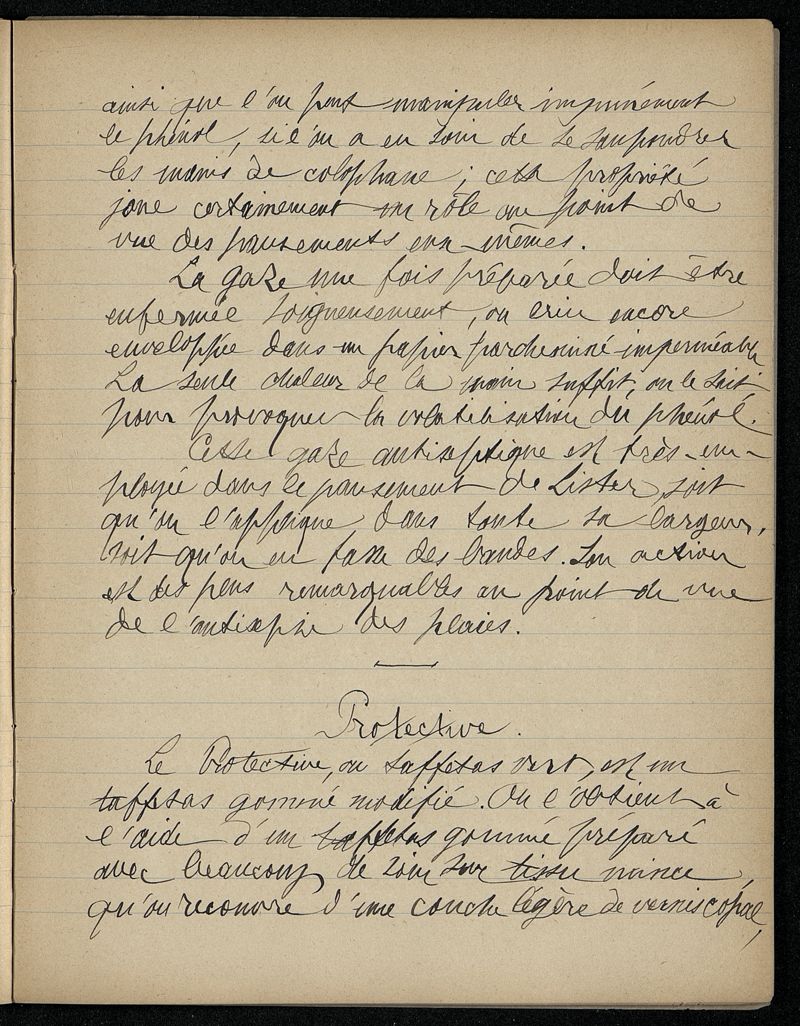 ainsi que l'on peut manipuler impunément
le phénol, si l'on a eu soin de se saupoudrer
les mains de colophane ; cette propriété
joue certainement un rôle au point de
vue des pansements eux-mêmes.
La gaze une fois préparée doit être
enfermée soigneusement, ou bien encore
enveloppée dans un papier parcheminé imperméable
La seule chaleur de la main suffit, on le sait
pour provoquer la volatilisation du phénol.
Cette gaze antiseptique est très-em-
ployée dans le pansement de Lister, soit
qu'on l'applique dans toute sa largeur,
soit qu'on en fasse des bandes. Son action
est des plus remarquables au point de vue
de l'antisepsie des plaies.
Protective.
Le Protective, ou taffetas vert, est un
taffetas gommé modifié. On l'obtient à
l'aide d'un taffetas gommé préparé
avec beaucoup de soin sur tissu mince,
qu'on recouvre d'une couche légère de vernis copal,